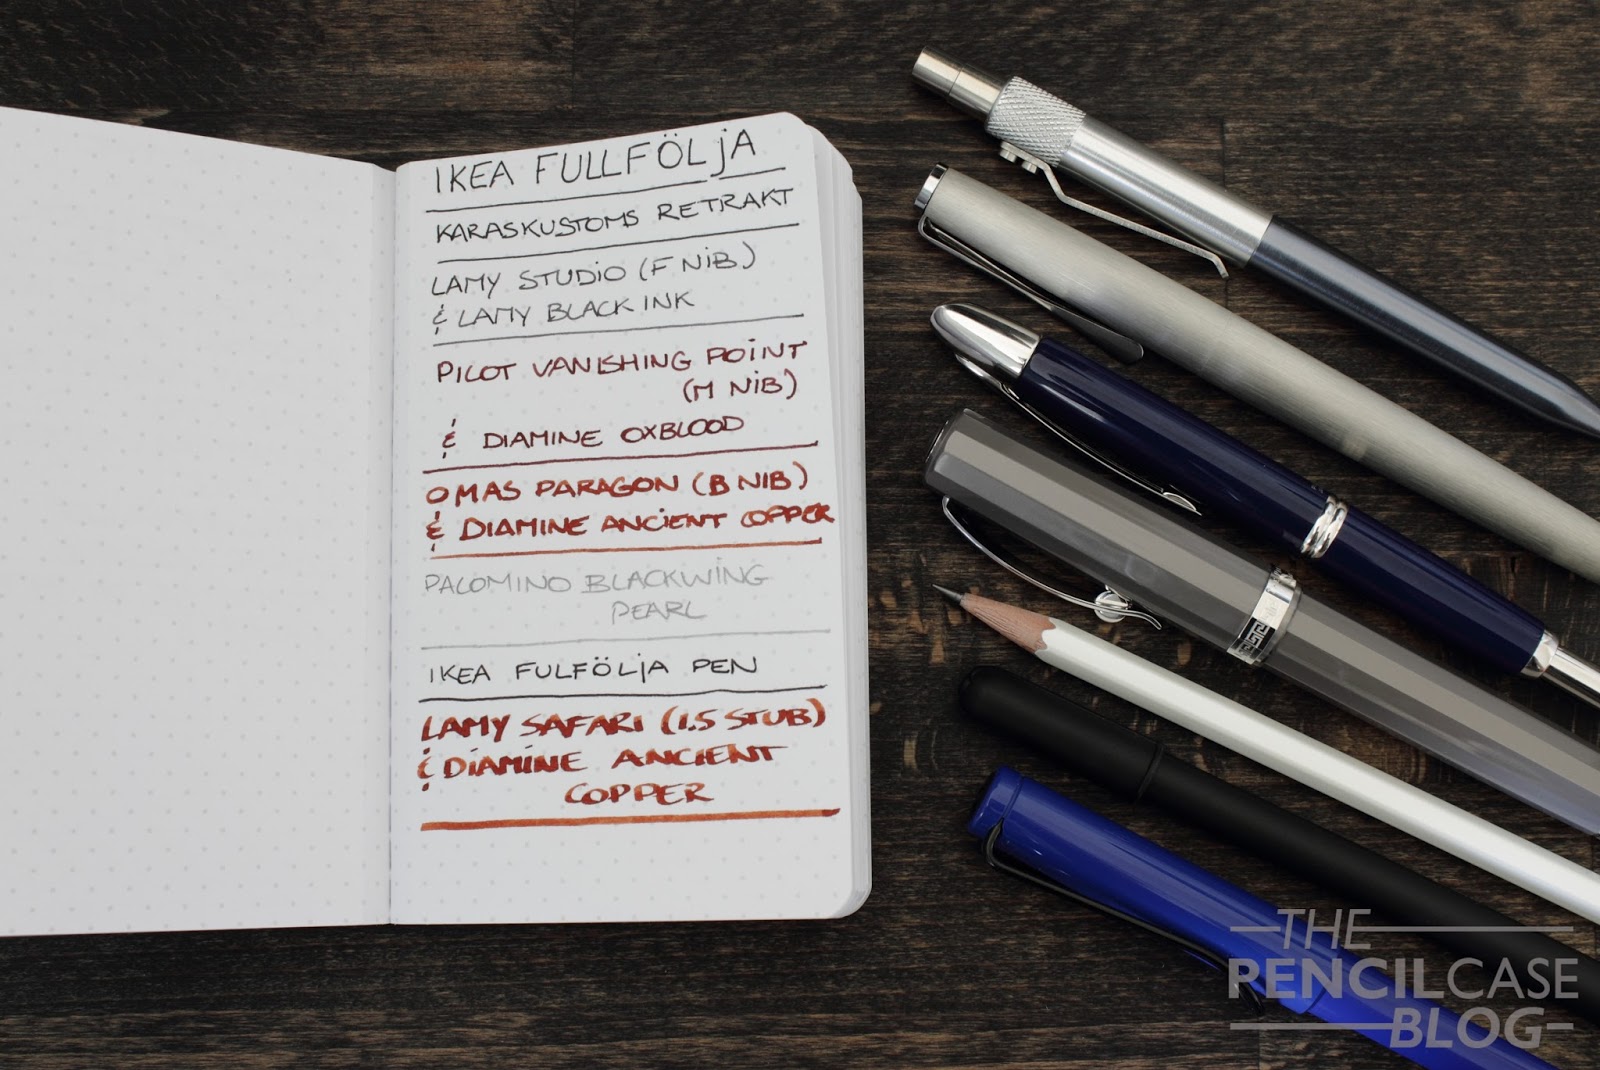 IKEA FULLFÖLjA
KARASKUSTOMS RETRAKT
LAMY STUDIO (F NiB)
& LAMY BLACK INK
PILOT VANISHING POiNT
(M NiB)
& DIAMINE OXBLOOD
OMAS PARAGON (B NIB)
& DIAMINE ANCiENT COPPER
PALOMINO BLACKWiNG
PEARL
IKEA FULFÖLjA PEN
LAMY SAFARI (1.5 STUB)
& DiAMiNE ANCiENT
COPPER
THE
PENCILCASE
BLOG